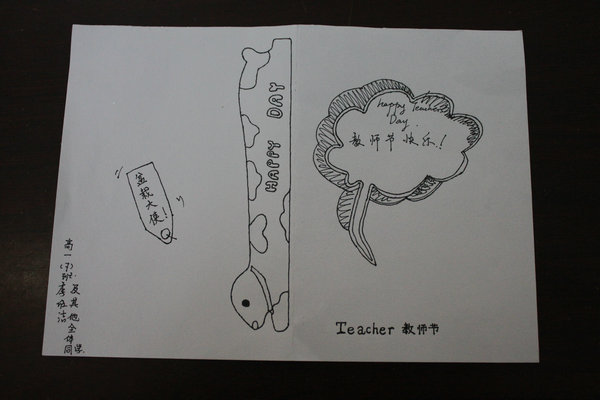 盆栽大使!
高一(7)班
及其他全体同学
HAPPY DAY
happy Teachers
Day.
教师节快乐!
Teacher 教师节